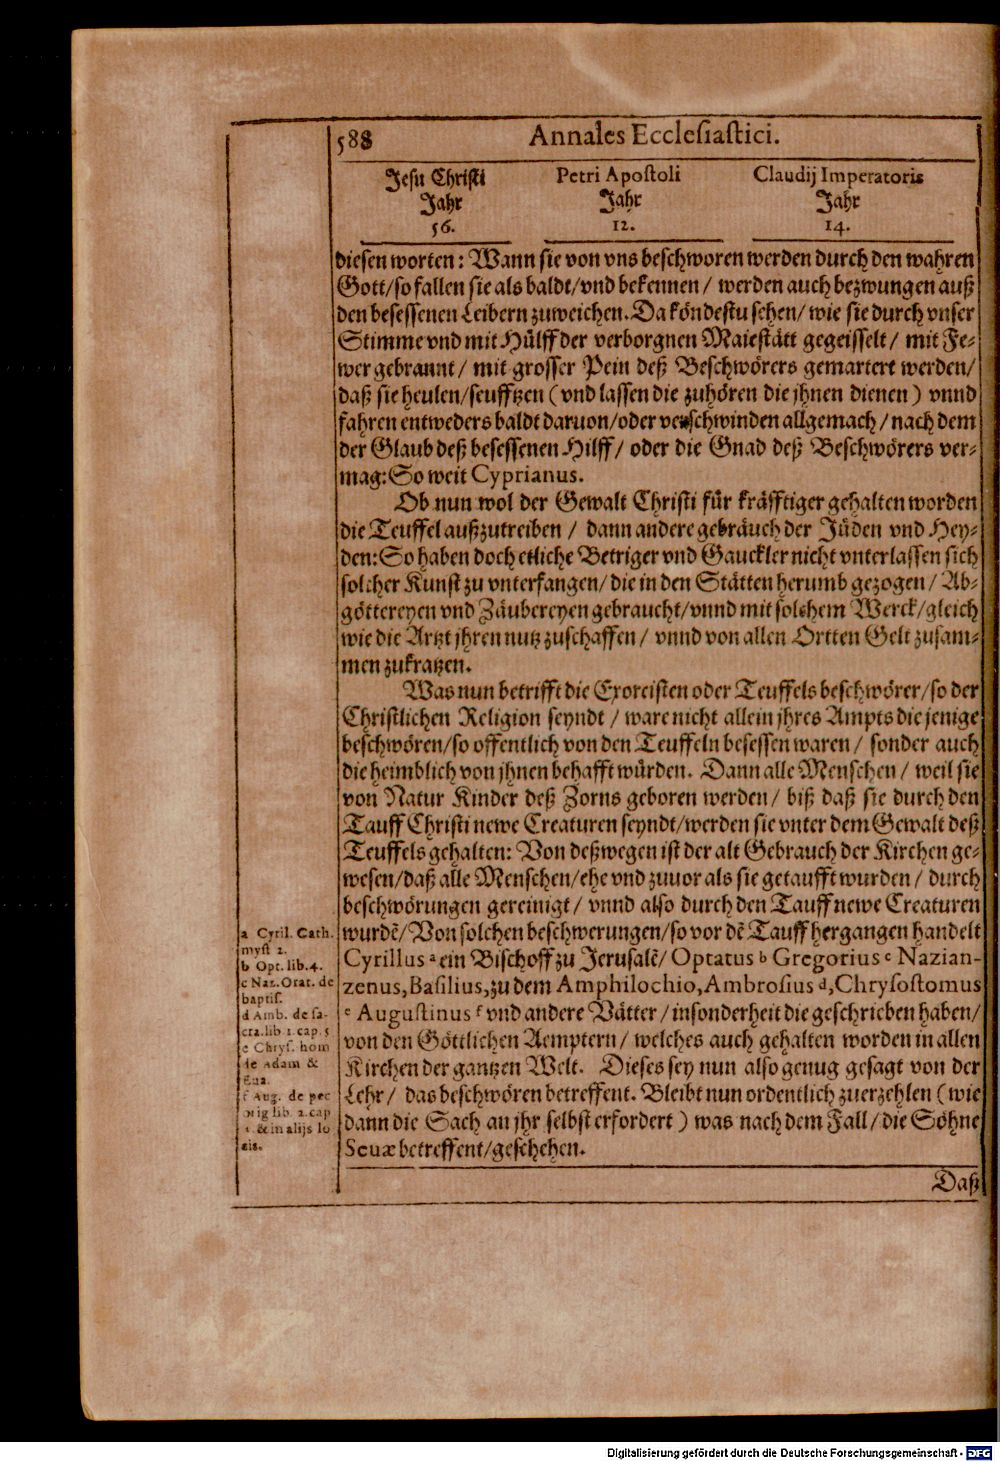 588 Annales Ecclesiastici.
Jesu Christi Petri Apostoli Claudij Imperatoris
Jahr Jahr Jahr
56. 12. 14.
diesen worten: Wann sie von vns beschworen werden durch den wahren
Gott/so fallen sie als baldt/vnd bekennen/ werden auch bezwungen auß
den besessenen Leibern zuweichen. Da köndestu sehen/ wie sie durch vnser
Stimme vnd mit Hülff der verborgnen Maiestätt gegeisselt/ mit Fe-
wer gebrannt/ mit grosser Pein deß Beschwörers gemartert werden/
daß sie heulen/seufftzen (vnd lassen die zuhören die jhnen dienen) vnnd
fahren entweders baldt daruon/oder verschwinden allgemach/ nach dem
der Glaub deß besessenen Hilff/ oder die Gnad deß Beschwörers ver-
mag: So weit Cyprianus.
Ob nun wol der Gewalt Christi für kräfftiger gehalten worden
die Teuffel außzutreiben/ dann andere gebräuch der Jüden vnd Hey-
den: So haben doch etliche Betriger vnd Gauckler nicht vnterlassen sich
solcher Kunst zu vnterfangen/ die in den Stätten herumb gezogen/ Ab-
göttereyen vnd Zäubereyen gebraucht/vnnd mit solchem Werck/gleich
wie die Artzt jhren nutz zuschaffen/ vnnd von allen Ortten Gelt zusam-
men zukratzen.
Was nun betrifft die Exorcisten oder Teuffels beschwörer/so der
Christlichen Religion seyndt/ ware nicht allein jhres Ampts die jenige
beschwören/so offentlich von den Teuffeln besessen waren/ sonder auch
die heimblich von jhnen behafft würden. Dann alle Menschen/ weil sie
von Natur Kinder deß Zorns geboren werden/ biß daß sie durch den
Tauff Christi newe Creaturen seyndt/werden sie vnter dem Gewalt deß
Teuffels gehalten: Von deßwegen ist der alt Gebrauch der Kirchen ge-
wesen/daß alle Menschen/ehe vnd zuuor als sie getaufft wurden/ durch
beschwörungen gereinigt/ vnnd also durch den Tauff newe Creaturen
wurdẽ/ Von solchen beschwerungen/so vor dẽ Tauff hergangen handelt
Cyrillus a ein Bischoff zu Jerusalẽ/ Optatus b Gregorius c Nazian-
zenus, Basilius, zu dem Amphilochio, Ambrosius d, Chrysostomus
e Augustinus f vnd andere Vätter/ insonderheit die geschrieben haben/
von den Göttlichen Aemptern/ welches auch gehalten worden in allen
Kirchen der gantzen Welt. Dieses sey nun also genug gesagt von der
Lehr/ das beschwören betreffent. Bleibt nun ordentlich zuerzehlen (wie
dann die Sach an jhr selbst erfordert) was nach dem Fall/ die Söhne
Sceuæ betreffent/geschehen.
Daß
a Cyril. Cath.
myst 2.
b Opt. lib. 4.
c Naz. Orat. de
baptis.
d Amb. de sa-
cra. lib 1. cap. 5
e Chrys. hom
de Adam &
Eua.
f Aug. de pec
orig lib. 2. cap
& in alijs lo
cis.
Digitalisierung gefördert durch die Deutsche Forschungsgemeinschaft - DFG